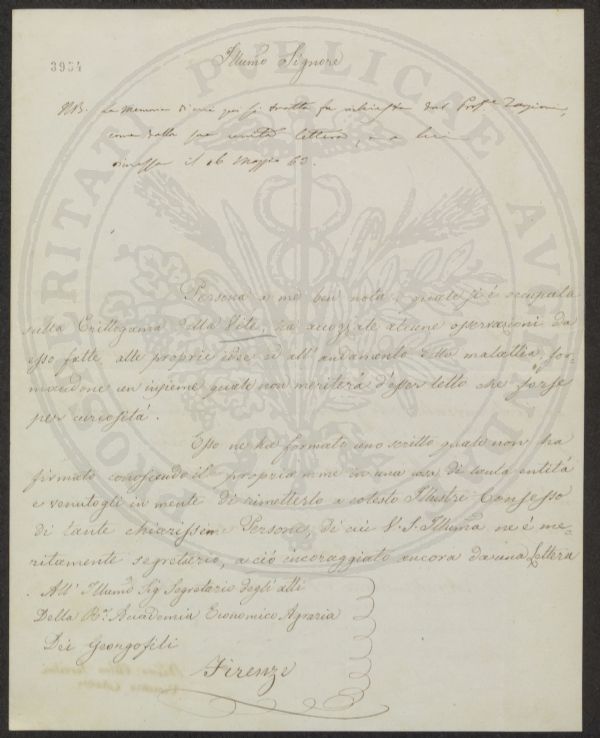 3934
Illumo Signore
NB. La Memoria di cui qui si tratta fu richiesta dal Profre Targioni,
come dalla sua lettera, e a lui
rimessa il 16 Maggio 60.
Persona a me ben nota, quale si è occupata
sulla Crittogamia della Vite, ha accozzate alcune osservazioni da
esso fatte, alle proprie idee ed all'andamento della malattia, for-
mandone un insieme quale non meriterà d'esser letto che forse
per curiosità.
Esso ne ha formato uno scritto quale non ha
firmato conoscendo il proprio nome in una cosa di tanta entità
e venutogli in mente di rimetterlo a cotesto Illustre Consesso
di tante chiarissime Persone, di cui V. S. Illuma ne è me-
ritamente segretario, a ciò incoraggiato ancora da una Lettera
All' Illumo Sig Segretario degli atti
Della R. Accademia Economico Agraria
Dei Georgofili
Firenze
PUBLICAE